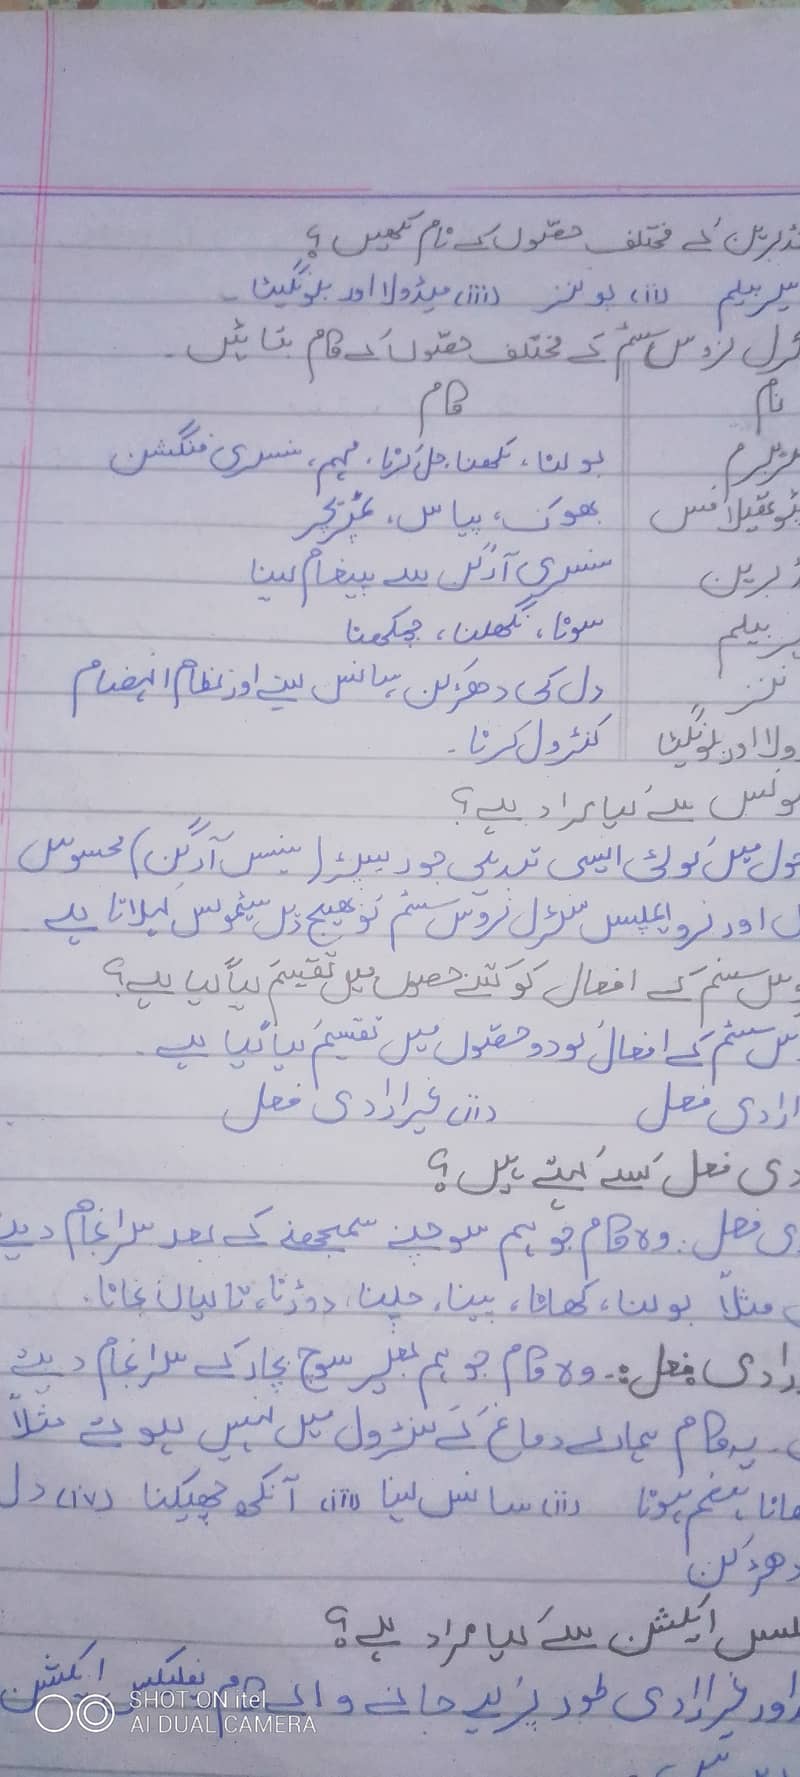 برین کے مختلف حصّوں کے نام لکھیں؟
سیریبیلم (ii) پونز (iii) میڈولا اور بلونگیٹا۔
نروس سسٹم کے مختلف حصّوں کے کام بتائیں۔
نام کام
بولنا، لکھنا، حل کرنا، فہم، سنسری فنکشن
بھوک، پیاس، ٹمپریچر
برین سنسری آرگن سے پیغام لینا
بیلم سونا، نگھلنا، چکھنا
نز دل کی دھڑکن، سانس لینے اور نظام انہضام
ولا اور بلونگیٹا کنٹرول کرنا۔
سے کیا مراد ہے؟
حول میں کوئی ایسی تبدیلی جو (سینس آرگن) محسوس
اور نرو امپلس سنٹرل نروس سسٹم کو بھیج دیں سٹمولس کہلاتا ہے
وس سسٹم کے افعال کو کتنے حصوں میں تقسیم کیا گیا ہے؟
وس سسٹم کے افعال کو دو حصّوں میں تقسیم کیا گیا ہے۔
ارادی فعل (ii) غیر ارادی فعل
دی فعل کسے کہتے ہیں؟
دی فعل: وہ کام جو ہم سوچنے سمجھنے کے بعد سرانجام دیتے
مثلاً بولنا، کھانا، پینا، چلنا، دوڑنا، تالیاں بجانا۔
رادی فعل:۔ وہ کام جو ہم بغیر سوچ بچار کے سرانجام دیتے
۔ یہ کام ہمارے دماغ کے کنٹرول میں نہیں ہوتے مثلاً
ھانا ہضم ہونا (ii) سانس لینا (iii) آنکھ جھپکنا (iv) دل
دھڑکن
ایکشن سے کیا مراد ہے؟
اور غیر ارادی طور پر کیے جانے والے کام ریفلیکس ایکشن
SHOT ON itel
AI DUAL CAMERA